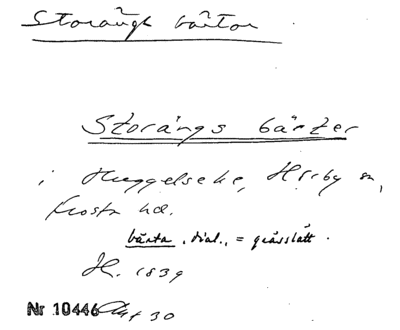 Storängs bärtor
Storängs bärter
i Huggelseke, Hörby sn,
Frosta hd.
bärta, dial., = grässlått.
H. 1839
Nr 10446 Akt 30